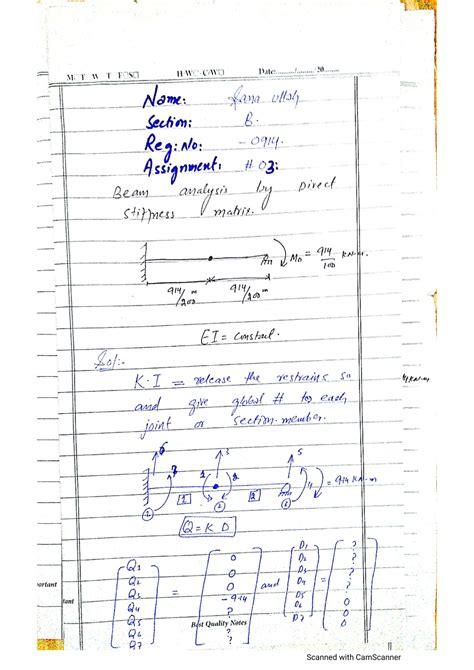 M T W T F S H.W C.W Date 20
Name: Sana ullah
Section: B.
Reg: No: - 0914.
Assignment: # 03:
Beam analysis by Direct
stiffness matrix.
Mo = 914/100 KN-m.
914/200 m 914/200 m
EI = constant.
Sol:-
K.I = release the restrains so
and give global # to each
joint or section-member.
6 3 5
7 1 2 4 = 914 KN-m
1 2
Q = K D
Q1 0 D1 ?
Q2 0 D2 ?
Q3 = 0 and D3 = ?
Q4 -914 D4 ?
Q5 ? D5
Q6 ? D6 0
Q7 ? D7 0
Best Quality Notes
Scanned with CamScanner